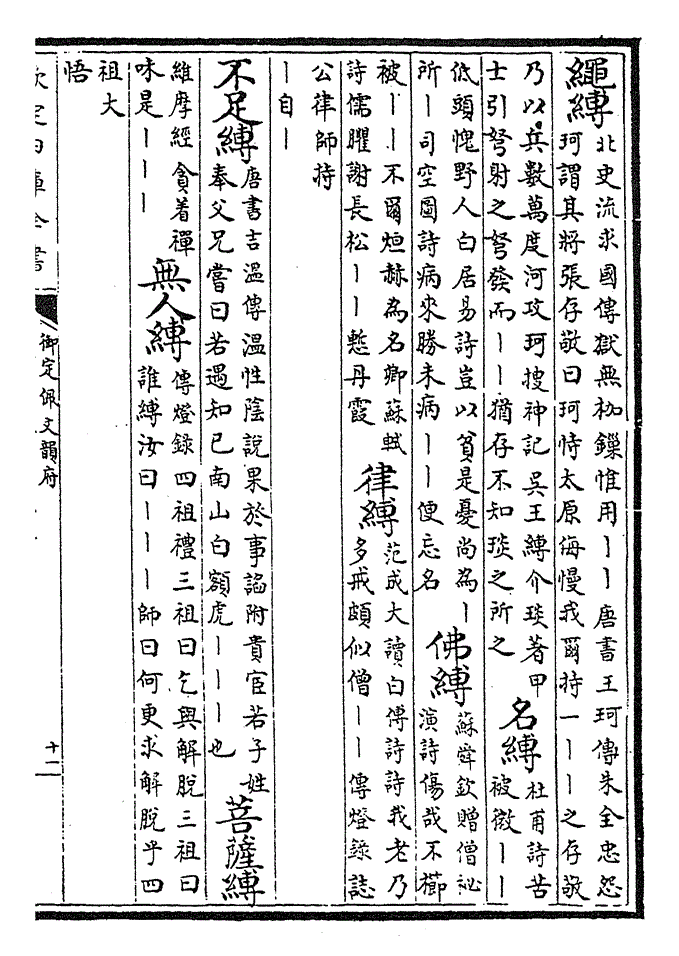 繩縛
北史流求國傳獄無枷鏁惟用丨丨唐書王珂傳朱全忠怨
珂謂其將張存敬曰珂恃太原侮慢我爾持一丨丨之存敬
乃以兵數萬度河攻珂搜神記吳王縛介琰著甲
士引弩射之弩發而丨丨猶存不知琰之所之
名縛
杜甫詩苦
被微丨丨
低頭愧野人白居易詩豈以貧是憂尚為丨
所丨司空圖詩病來勝未病丨丨便忘名
佛縛
蘇舜欽贈僧祕
演詩傷哉不櫛
被丨丨不爾烜赫為名卿蘇軾
詩儒臞謝長松丨丨慙丹霞
律縛
范成大讀白傅詩詩我老乃
多戒頗似僧丨丨傳燈錄誌
公律師持
丨自丨
不足縛
唐書吉溫傳溫性陰說果於事諂附貴宦若子姓
奉父兄嘗曰若遇知已南山白額虎丨丨丨也
菩薩縛
維摩經貪着禪
味是丨丨丨
無人縛
傳燈錄四祖禮三祖曰乞與解脫三祖曰
誰縛汝曰丨丨丨師曰何更求解脫乎四
祖大
悟
欽定四庫全書
御定佩文韻府
十二